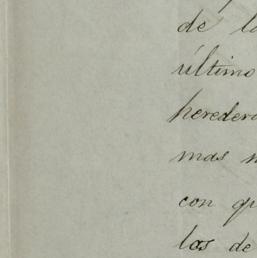 de l
último
heredero
mas
con qu
las de